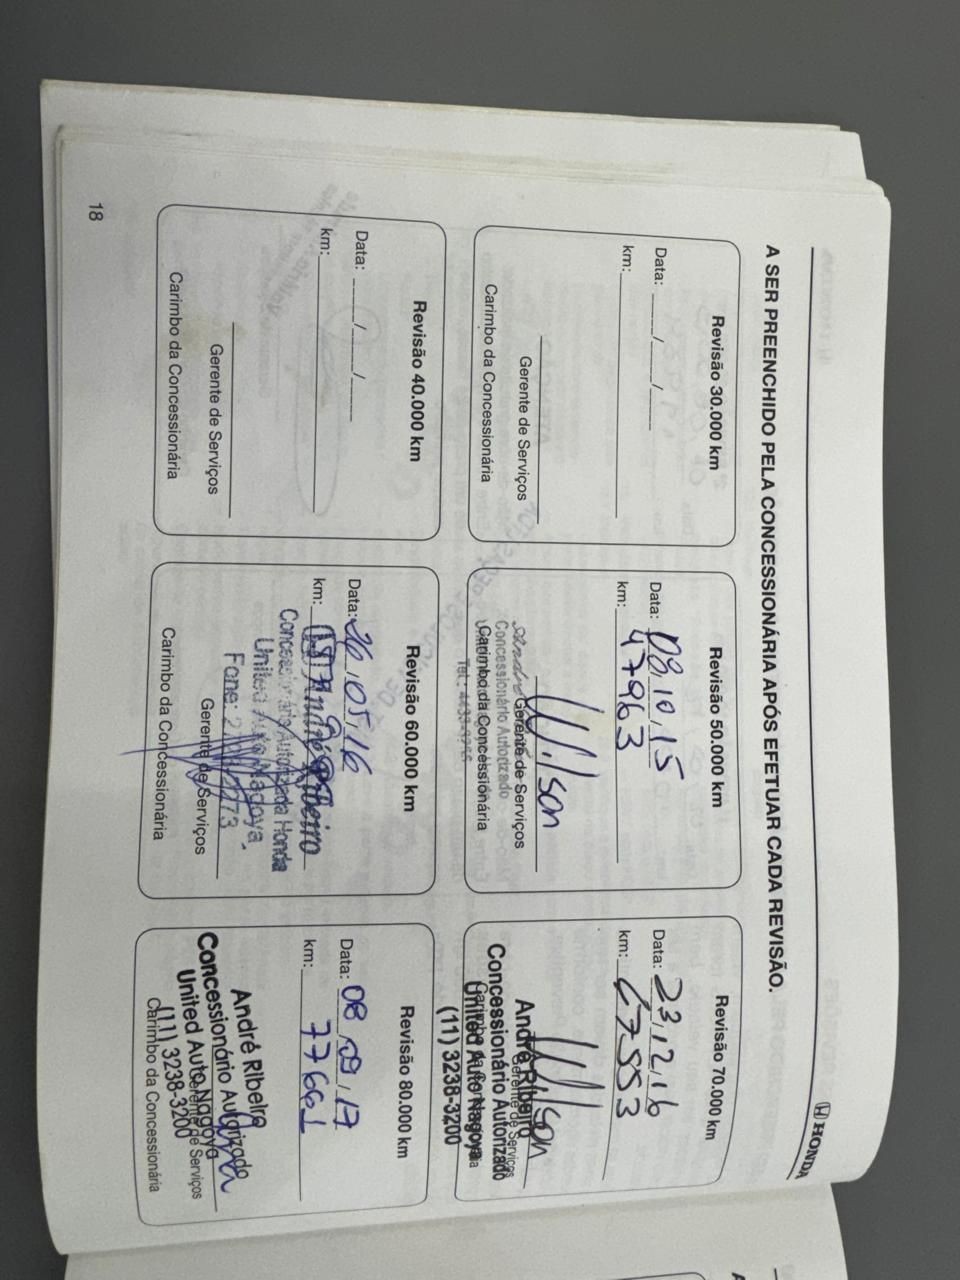 HONDA
A SER PREENCHIDO PELA CONCESSIONÁRIA APÓS EFETUAR CADA REVISÃO.
Revisão 30.000 km
Data: ____/____/____
km:
Gerente de Serviços
Carimbo da Concessionária
Revisão 50.000 km
Data: 08/10/15
km: 47963
Wilson
Gerente de Serviços
Concessionário Autorizado
Carimbo da Concessionária
Revisão 70.000 km
Data: 23/12/16
km: 67553
Wilson
André Ribeiro
Gerente de Serviços
Concessionário Autorizado
United Auto Nagoya
(11) 3238-3200
Revisão 40.000 km
Data: ____/____/____
km:
Gerente de Serviços
Carimbo da Concessionária
Revisão 60.000 km
Data: 26/05/16
km:
André Ribeiro
Concessionária Autorizada Honda
United Auto Nagoya
Fone:
Gerente de Serviços
Carimbo da Concessionária
Revisão 80.000 km
Data: 08/09/17
km: 77661
André Ribeiro
Concessionário Autorizado
United Auto Nagoya
Gerente de Serviços
(11) 3238-3200
Carimbo da Concessionária
18